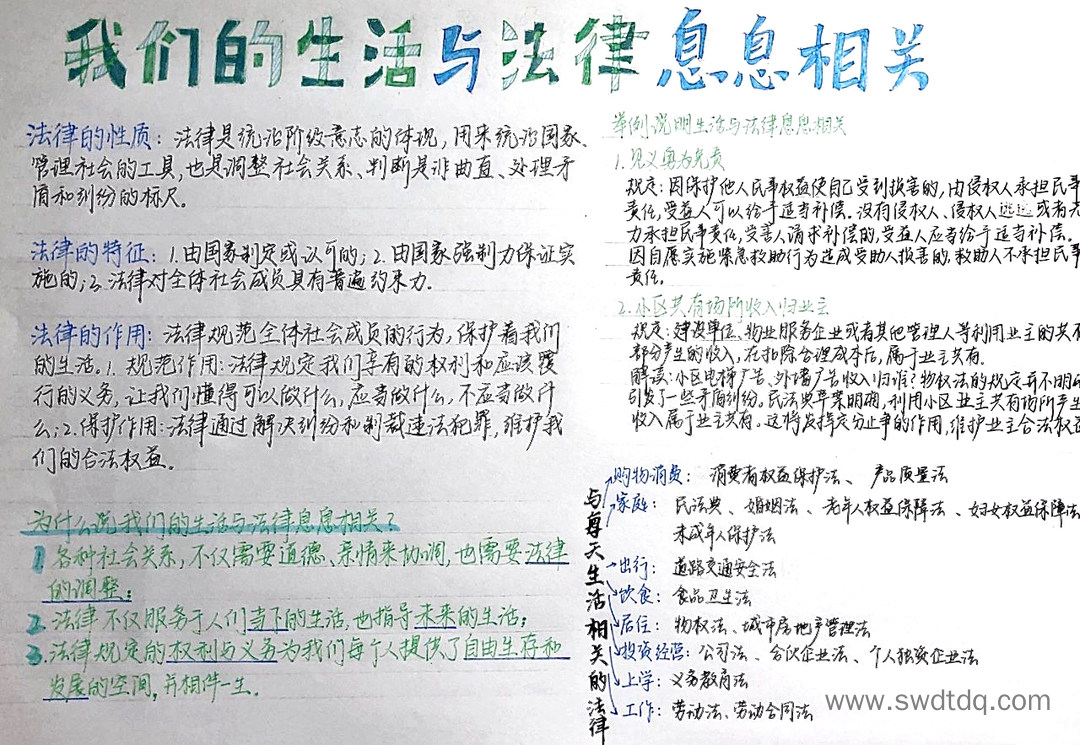 我们的生活与法律息息相关
法律的性质：法律是统治阶级意志的体现，用来统治国家、
管理社会的工具，也是调整社会关系、判断是非曲直、处理矛
盾和纠纷的标尺。
法律的特征：1.由国家制定或认可的；2.由国家强制力保证实
施的；3.法律对全体社会成员具有普遍约束力.
法律的作用：法律规范全体社会成员的行为，保护着我们
的生活。1.规范作用：法律规定我们享有的权利和应该履
行的义务，让我们懂得可以做什么，应当做什么，不应当做什
么；2.保护作用：法律通过解决纠纷和制裁违法犯罪，维护我
们的合法权益。
为什么说我们的生活与法律息息相关？
1 各种社会关系，不仅需要道德、亲情来协调，也需要法律
的调整；
2.法律不仅服务于人们当下的生活，也指导未来的生活；
3.法律规定的权利与义务为我们每个人提供了自由生存和
发展的空间，并相伴一生.
举例说明生活与法律息息相关
1.见义勇为免责
规定：因保护他人民事权益使自己受到损害的，由侵权人承担民事
责任，受益人可以给予适当补偿。没有侵权人、侵权人逃逸或者无
力承担民事责任，受害人请求补偿的，受益人应当给予适当补偿。
因自愿实施紧急救助行为造成受助人损害的，救助人不承担民事
责任。
2.小区共有场所收入归业主
规定：建设单位、物业服务企业或者其他管理人等利用业主的共有
部分产生的收入，在扣除合理成本后，属于业主共有.
解读：小区电梯广告、外墙广告收入归谁？物权法的规定并不明确
引发了一些矛盾纠纷。民法典草案明确，利用小区业主共有场所产生
收入属于业主共有。这将发挥定分止争的作用，维护业主合法权益
与每天生活相关的法律
购物消费：消费者权益保护法、产品质量法
家庭：民法典、婚姻法、老年人权益保障法、妇女权益保障法
未成年人保护法
出行：道路交通安全法
饮食：食品卫生法
居住：物权法、城市房地产管理法
投资经营：公司法、合伙企业法、个人独资企业法
上学：义务教育法
工作：劳动法、劳动合同法
www.swdtdq.com